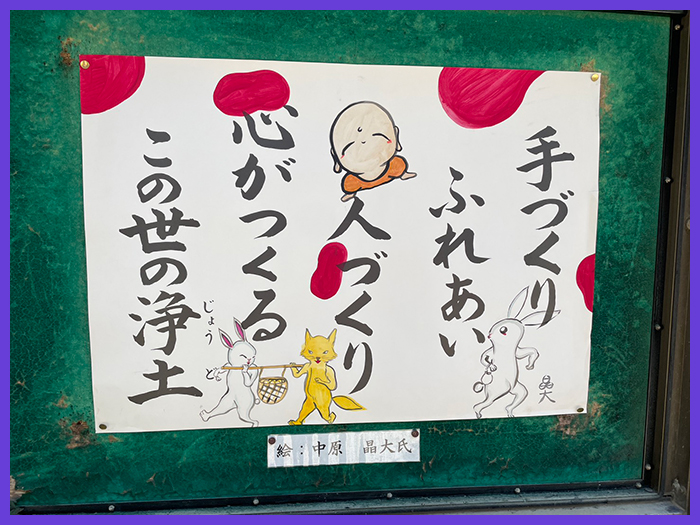 手づくり
ふれあい
人づくり
心がつくる
この世の浄土
じょうど
晶大
絵：中原 晶大氏